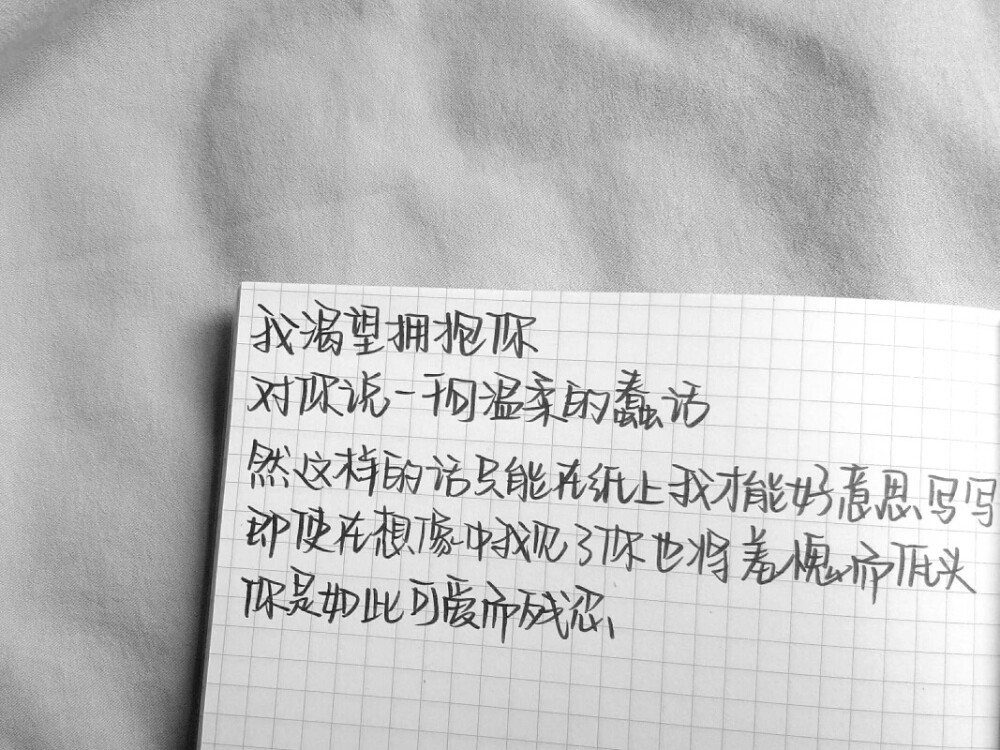 我渴望拥抱你
对你说一千句温柔的蠢话
然这样的话只能在纸上我才能好意思写写
即使在想像中我见了你也将羞愧而低头
你是如此可爱而残忍